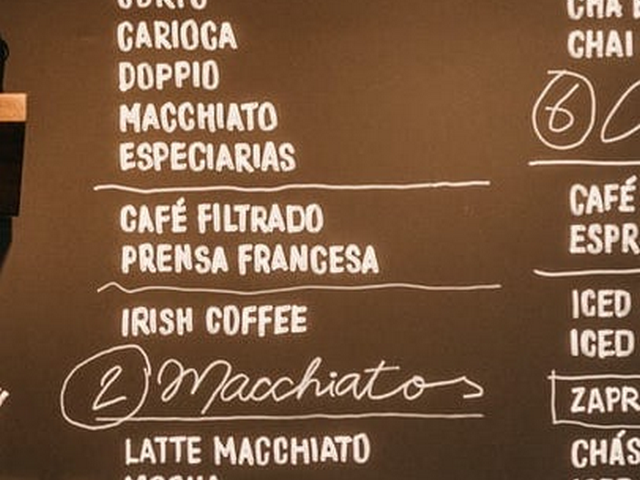 CURTO
CARIOCA
DOPPIO
MACCHIATO
ESPECIARIAS
CAFÉ FILTRADO
PRENSA FRANCESA
IRISH COFFEE
2 Macchiatos
LATTE MACCHIATO
MOCHA
CHÁ
CHAI
6
CAFÉ
ESPR
ICED
ICED
ZAPR
CHÁS
ICED